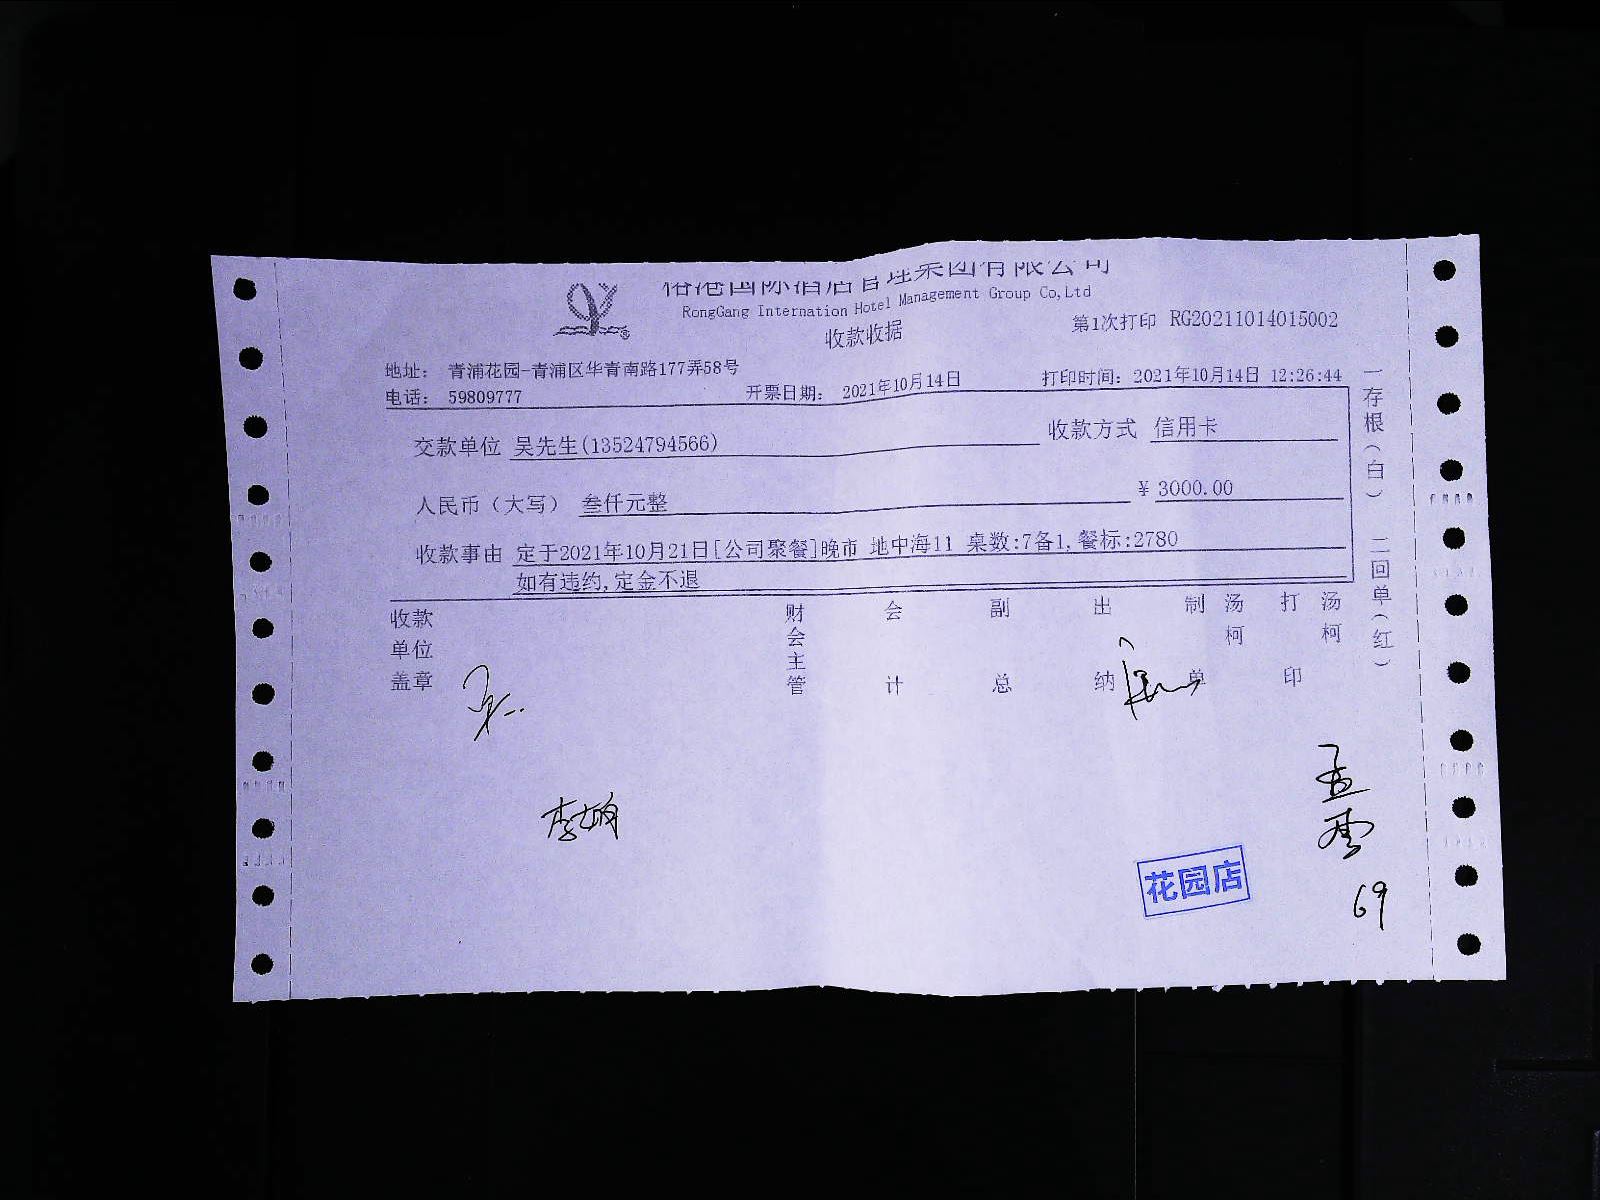 国际酒店管理集团有限公司
RongGang Internation Hotel Management Group Co,Ltd
收款收据
第1次打印 RG20211014015002
地址: 青浦花园-青浦区华青南路177弄58号
电话: 59809777
开票日期: 2021年10月14日
打印时间: 2021年10月14日 12:26:44
交款单位 吴先生(13524794566)
收款方式 信用卡
人民币(大写) 叁仟元整
¥ 3000.00
收款事由 定于2021年10月21日[公司聚餐]晚市 地中海11 桌数:7备1,餐标:2780
如有违约,定金不退
收款单位盖章
财会主管
会计
副总
出纳
制单 汤柯
打印 汤柯
一存根(白) 二回单(红)
花园店
69